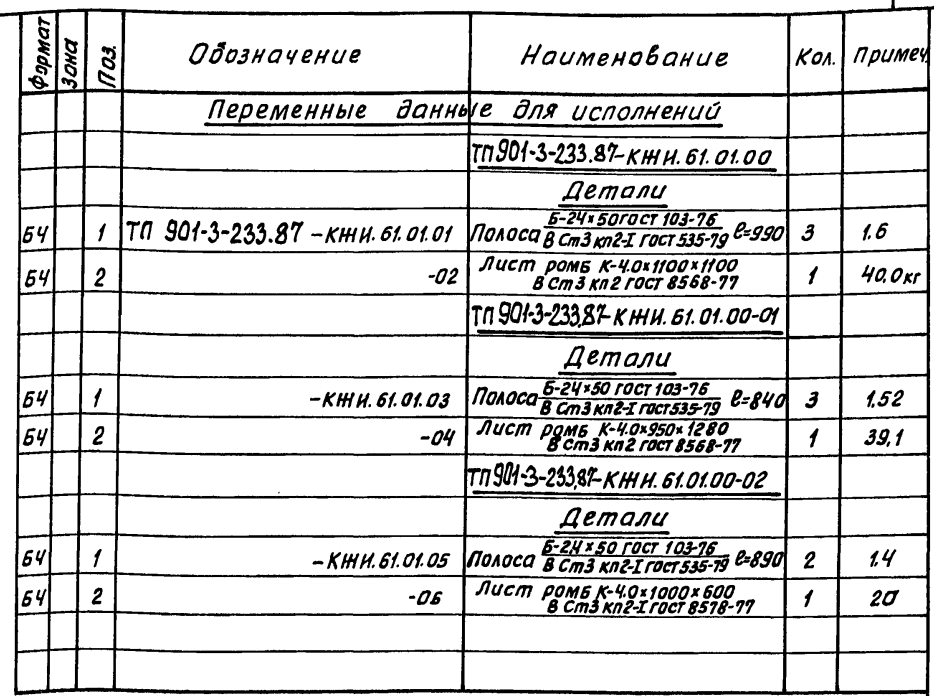 Формат Зона Поз. Обозначение Наименование Кол. Примеч.
Переменные данные для исполнений
ТП 901-3-233.87-КЖИ.61.01.00
Детали
БЧ 1 ТП 901-3-233.87-КЖИ.61.01.01 Полоса Б-2,4×50 ГОСТ 103-76 / В Ст3 кп2-I ГОСТ 535-79 ℓ=990 3 1.6
БЧ 2 -02 Лист ромб К-4.0×1100×1100
В Ст3 кп2 ГОСТ 8568-77 1 40.0кг
ТП 901-3-233.87-КЖИ.61.01.00-01
Детали
БЧ 1 -КЖИ.61.01.03 Полоса Б-2,4×50 ГОСТ 103-76 / В Ст3 кп2-I ГОСТ 535-79 ℓ=840 3 1.52
БЧ 2 -04 Лист ромб К-4.0×950×1280
В Ст3 кп2 ГОСТ 8568-77 1 39,1
ТП 901-3-233.87-КЖИ.61.01.00-02
Детали
БЧ 1 -КЖИ.61.01.05 Полоса Б-2,4×50 ГОСТ 103-76 / В Ст3 кп2-I ГОСТ 535-79 ℓ=890 2 1.4
БЧ 2 -06 Лист ромб К-4.0×1000×600
В Ст3 кп2-I ГОСТ 8578-77 1 20